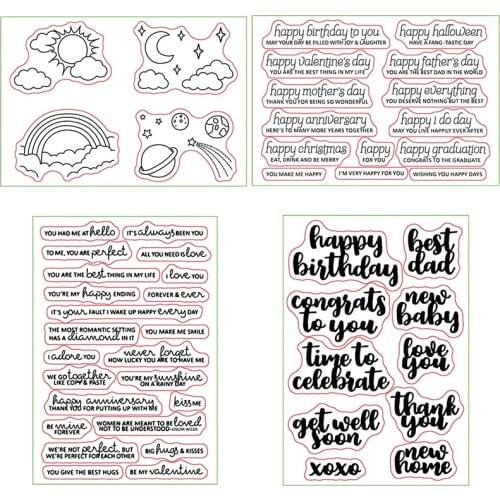 happy birthday to you
MAY YOUR DAY BE FILLED WITH JOY & LAUGHTER
happy halloween
HAVE A FANG -TASTIC DAY
happy valentine's day
YOU ARE THE BEST THING IN MY LIFE
happy father's day
YOU ARE THE BEST DAD IN THE WORLD
happy mother's day
THANK YOU FOR BEING SO WONDERFUL
happy everything
YOU DESERVE NOTHING BUT THE BEST
happy anniversary
HERE'S TO MANY MORE YEARS TOGETHER
happy I do day
MAY YOU LIVE HAPPILY EVER AFTER
happy christmas
EAT, DRINK AND BE MERRY
happy
FOR YOU
happy graduation
CONGRATS TO THE GRADUATE
YOU MAKE ME HAPPY
I'M VERY HAPPY FOR YOU
WISHING YOU HAPPY DAYS
YOU HAD ME AT hello
IT'S always BEEN YOU
TO ME, YOU ARE perfect
ALL YOU NEED IS love
YOU ARE THE best THING IN MY LIFE
I love YOU
YOU'RE MY happy ENDING
FOREVER & ever
IT'S your FAULT I WAKE UP HAPPY every DAY
THE MOST ROMANTIC SETTING
HAS A diamond IN IT
YOU MAKE ME SMILE
I adore YOU
never forget
HOW LUCKY YOU ARE TO HAVE ME
WE go together
LIKE COPY & PASTE
YOU'RE MY sunshine
ON A RAINY DAY
happy anniversary
THANK YOU FOR PUTTING UP WITH ME
kiss ME
BE mine
FOREVER
WOMEN ARE MEANT TO BE loved
NOT TO BE UNDERSTOOD -OSCAR WILDE
WE'RE NOT perfect, BUT
WE'RE PERFECT FOR EACH OTHER
BIG hugs & KISSES
YOU GIVE THE BEST HUGS
BE MY valentine
happy
birthday
best
dad
congrats
to you
new
baby
time to
celebrate
love
you
get well
soon
thank
you
xoxo
new
home